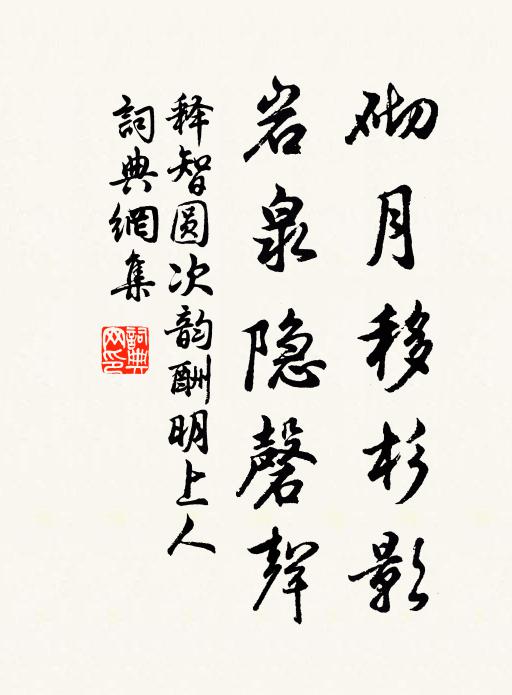 砌月移杉影
岩泉隐磬聲
释智圆次韵酬明上人
詞典網集
詞典网印